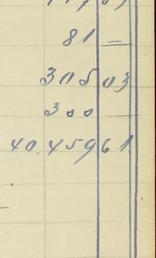 81 —
305 03
300
40.459 61